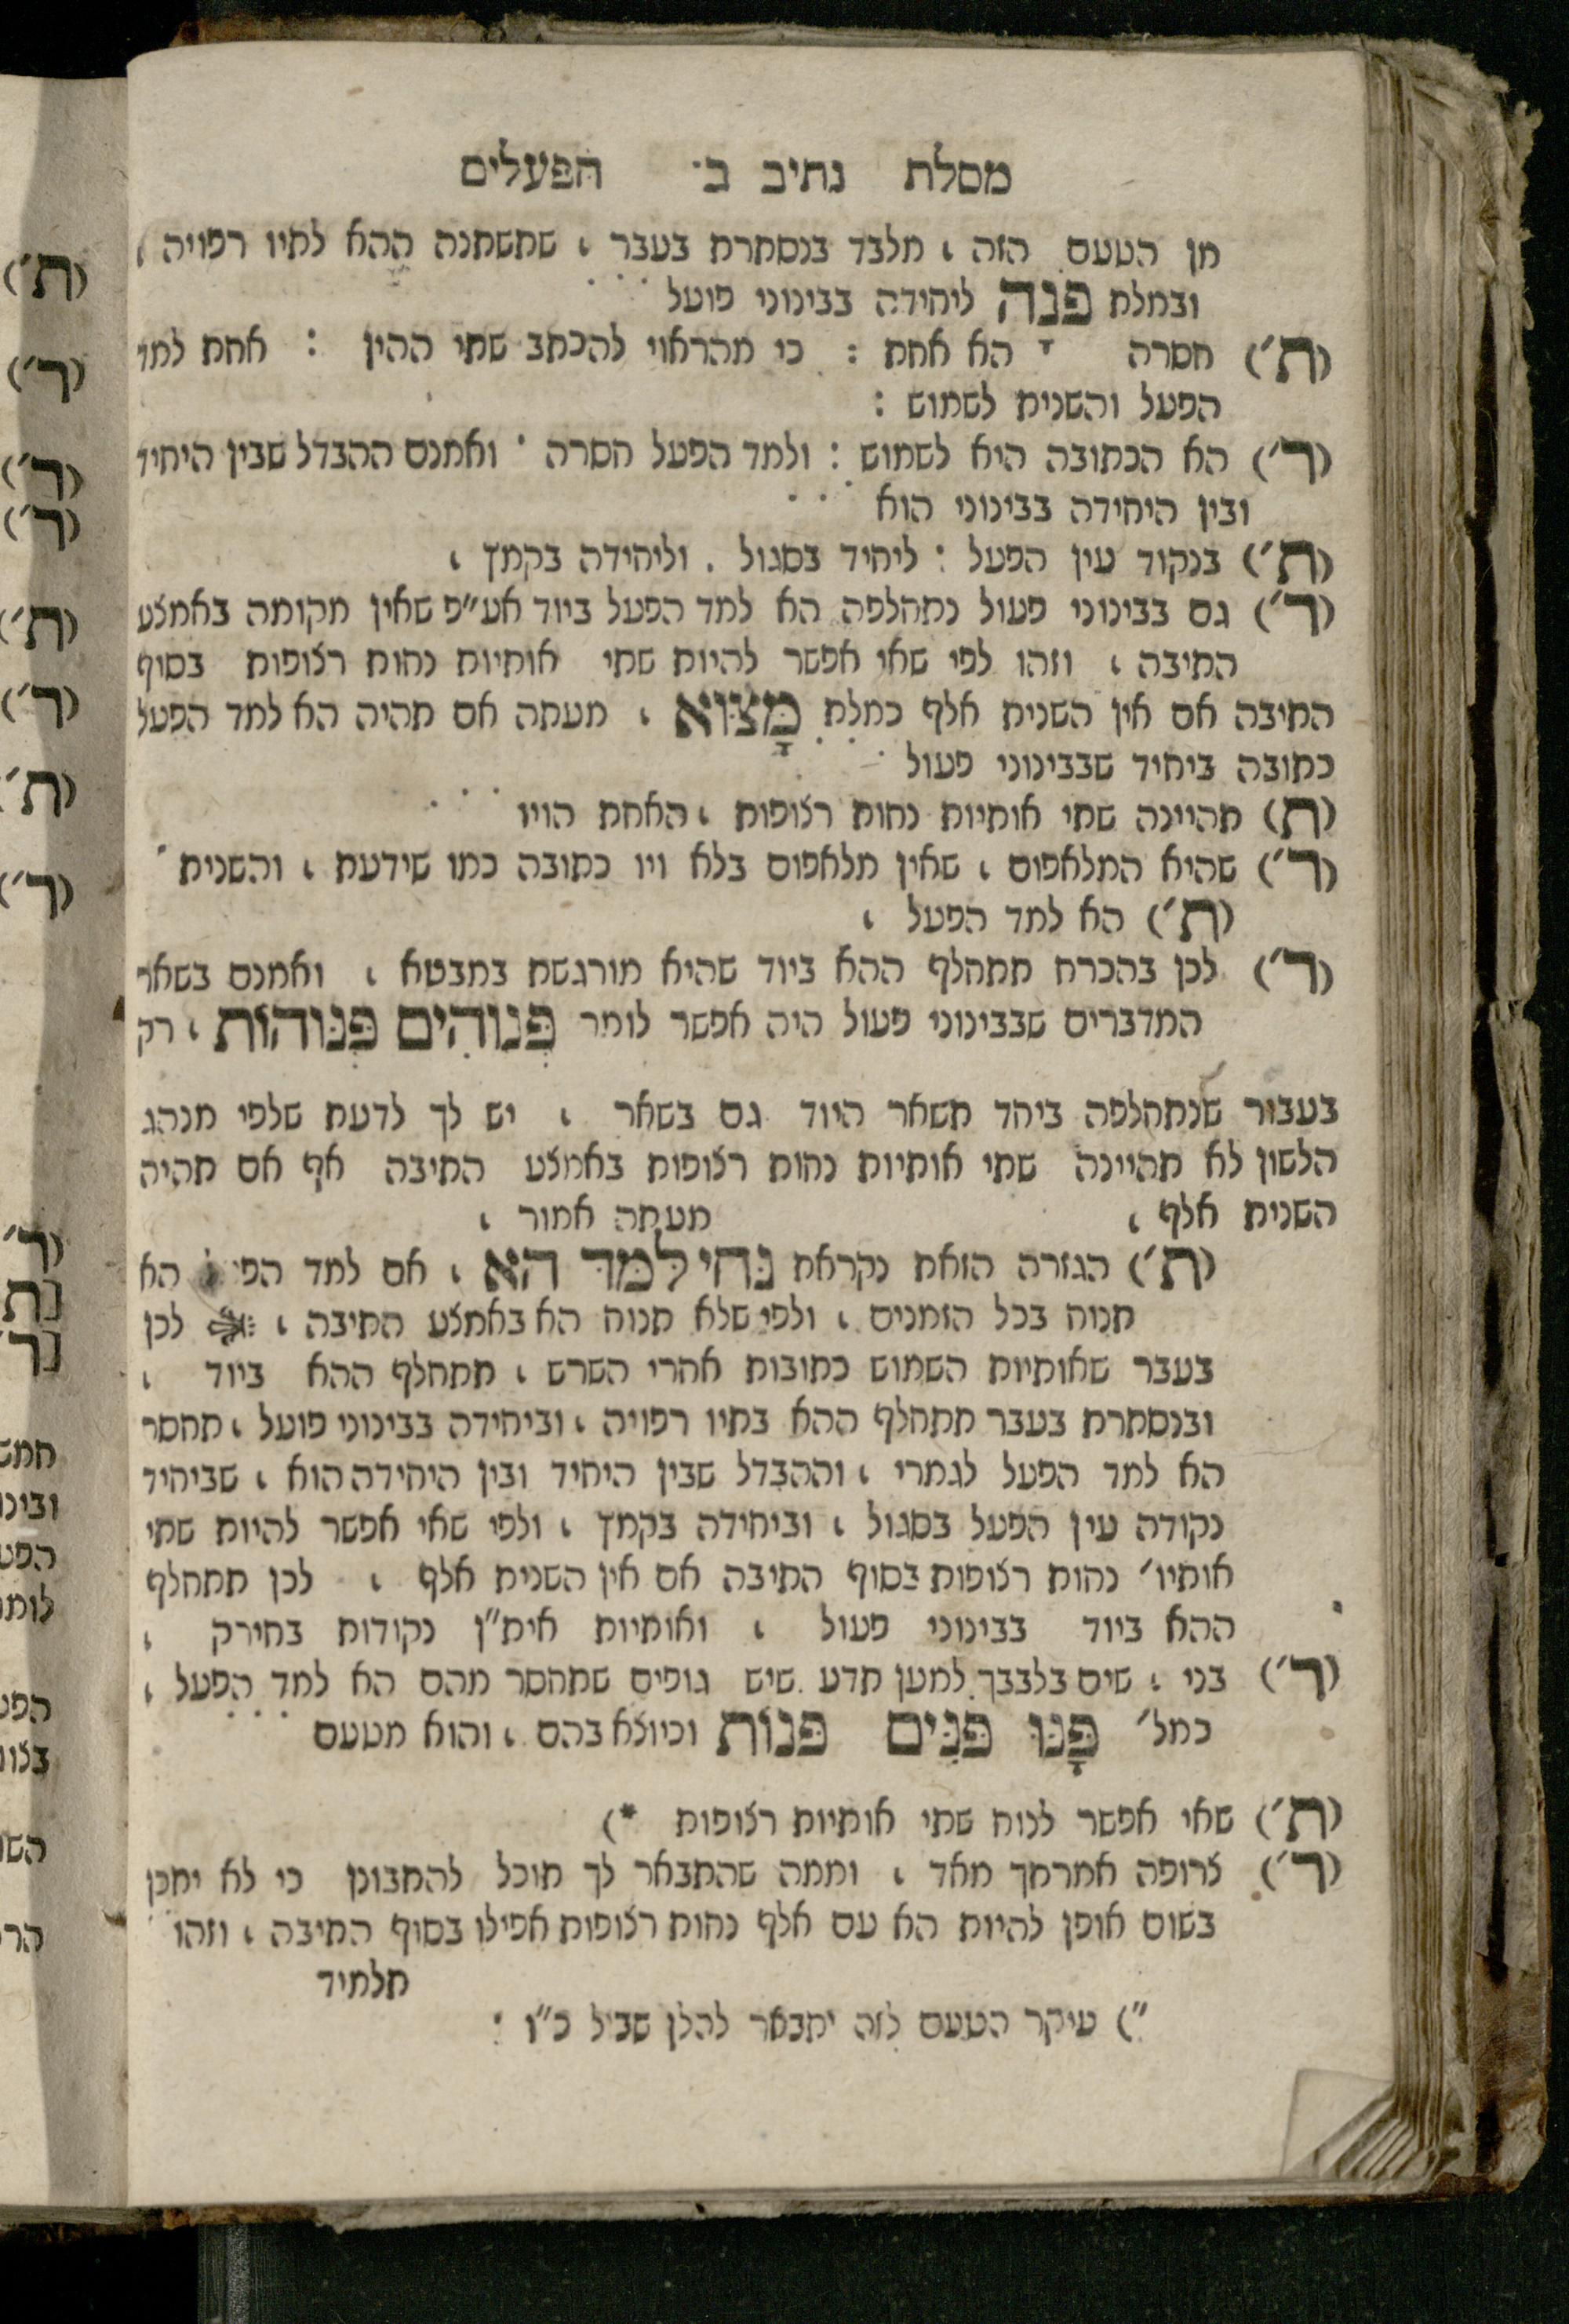 מסלת נתיב ב׳ הפעלים
מן הטעם הזה, מלבד בנסתרת בעבר, שתשתנה ההא לתיו רפויה,
ובמלת פנָה ליחידה בבינוני פועל
(ת׳) חסרה הא אחת : כי מהראוי להכתב שתי ההין : אחת למד
הפעל והשנית לשמוש :
(ר׳) הא הכתובה היא לשמוש : ולמד הפעל חסרה ׳ ואמנם ההבדל שבין היחיד
ובין היחידה בבינוני הוא
(ת׳) בנקוד עין הפעל : ליחיד בסגול . וליחידה בקמץ ,
(ר׳) גם בבינוני פעול נתחלפה הא למד הפעל ביוד אע״פ שאין מקומה באמצע
התיבה , וזהו לפי שאי אפשר להיות שתי אותיות נחות רצופות בסוף
התיבה אם אין השנית אלף כמלת מָצוּא , מעתה אם תהיה הא למד הפעל
כתובה ביחיד שבבינוני פעול
(ת) תהיינה שתי אותיות נחות רצופות , האחת הויו
(ר׳) שהיא המלאפום , שאין מלאפום בלא ויו כתובה כמו שידעת , והשנית
(ת׳) הא למד הפעל ,
(ר׳) לכן בהכרח תתחלף ההא ביוד שהיא מורגשת במבטא , ואמנם בשאר
המדברים שבבינוני פעול היה אפשר לומר פְּנוּהִים פְּנוּהוֹת , רק
בעבור שנתחלפה ביחד משאר היוד גם בשאר , יש לך לדעת שלפי מנהג
הלשון לא תהיינה שתי אותיות נחות רצופות באמצע התיבה אף אם תהיה
השנית אלף , מעתה אמור ,
(ת׳) הגזרה הזאת נקראת נחי למד הא , אם למד הא
תנוח בכל הזמנים , ולפי שלא תנוח הא באמצע התיבה , לכן
בעבר שאותיות השמוש כתובות אחרי השרש , תתחלף ההא ביוד ,
ובנסתרת בעבר תתחלף ההא בתיו רפויה , וביחידה בבינוני פועל , תחסר
הא למד הפעל לגמרי , וההבדל שבין היחיד ובין היחידה הוא , שביחיד
נקודה עין הפעל בסגול , וביחידה בקמץ , ולפי שאי אפשר להיות שתי
אותיו׳ נחות רצופות בסוף התיבה אם אין השנית אלף , לכן תתחלף
ההא ביוד בבינוני פעול , ואותיות אית״ן נקודות בחירק ,
(ר׳) בני , שים בלבבך למען תדע שיש גופים שתחסר מהם הא למד הפעל ,
כמל׳ פָּנוּ פּנִים פּנוֹת וכיוצא בהם , והוא מטעם
(ת׳) שאי אפשר לנוח שתי אותיות רצופות *)
(ר׳) צרופה אמרתך מאד , וממה שהתבאר לך תוכל להתבונן כי לא יתכן
בשום אופן להיות הא עם אלף נחות רצופות אפילו בסוף התיבה , וזהו
תלמיד
״) עיקר הטעם לזה יתבאר להלן שביל כ״ו :
(ת׳)
(ר׳)
(ר׳)
(ר׳)
(ת׳)
(ר׳)
(ת׳)
(ר׳)